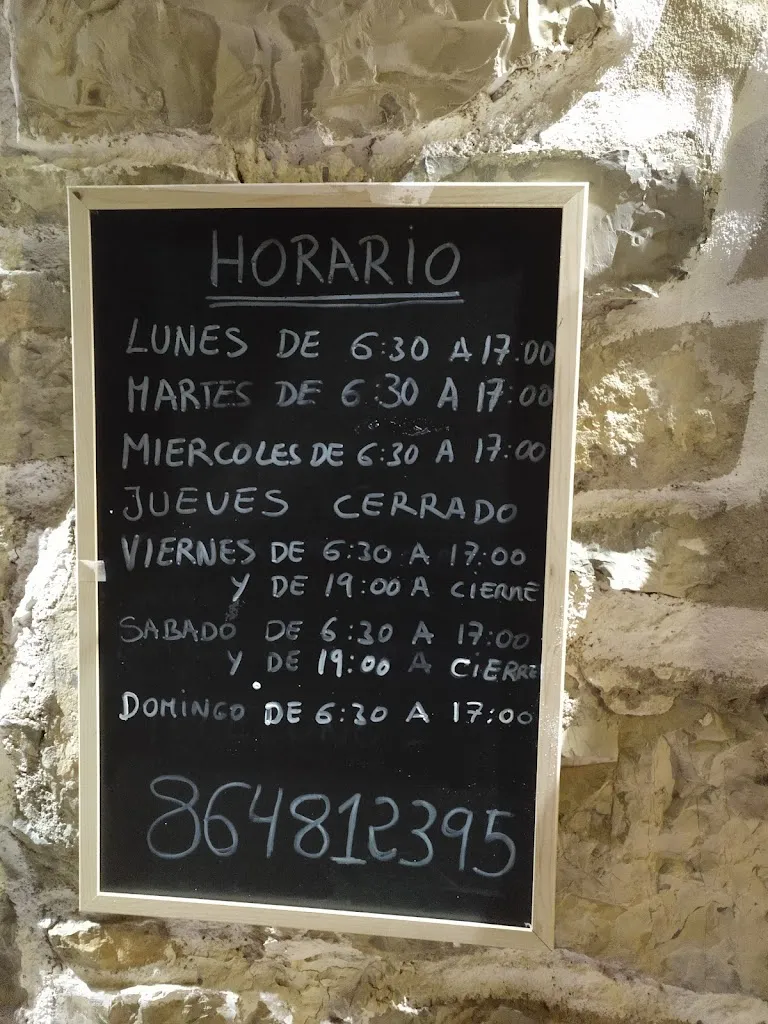 HORARIO
LUNES DE 6:30 A 17:00
MARTES DE 6:30 A 17:00
MIERCOLES DE 6:30 A 17:00
JUEVES CERRADO
VIERNES DE 6:30 A 17:00
Y DE 19:00 A CIERRE
SABADO DE 6:30 A 17:00
Y DE 19:00 A CIERRE
DOMINGO DE 6:30 A 17:00
864812395